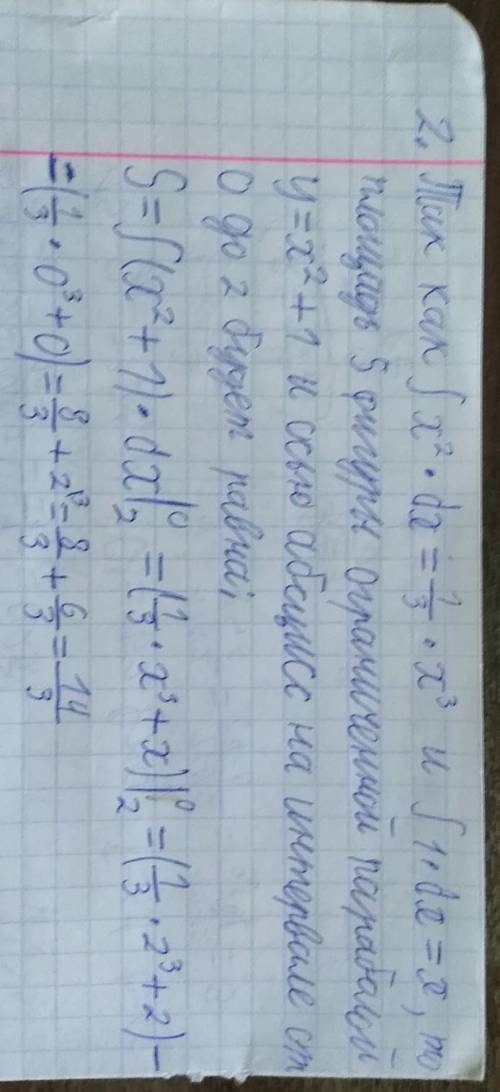 2. Так как ∫ x² · dx = 1/3 · x³ и ∫ 1 · dx = x, то
площадь S фигуры ограниченной параболой
y = x² + 1 и осью абсцисс на интервале от
0 до 2 будет равна;
S = ∫(x² + 1) · dx|₂⁰ = (1/3 · x³ + x)|₂⁰ = (1/3 · 2³ + 2) –
= (1/3 · 0³ + 0) = 8/3 + 2 = 8/3 + 6/3 = 14/3